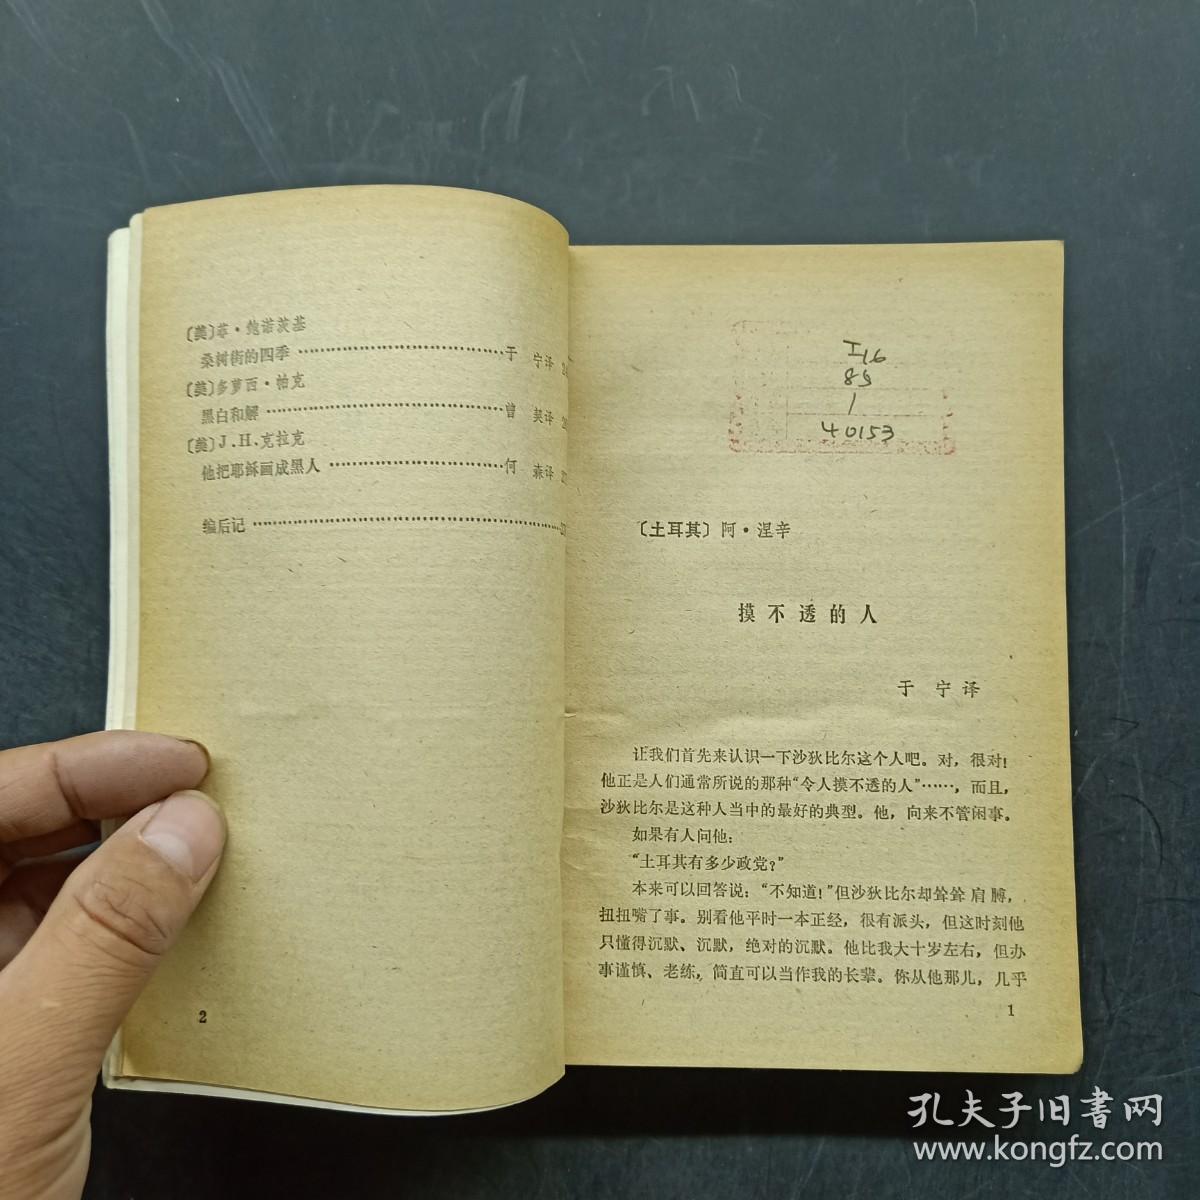 〔美〕菲·鲍诺茨基
桑树街的四季……………………………于 宁译
〔美〕多萝西·帕克
黑白和解……………………………………曾 契译
〔美〕J.H.克拉克
他把耶稣画成黑人………………………何 森译
编后记……………………………………………
2
I16
85
1
40153
〔土耳其〕阿·涅辛
摸不透的人
于 宁译
让我们首先来认识一下沙狄比尔这个人吧。对，很对！
他正是人们通常所说的那种“令人摸不透的人”……，而且，
沙狄比尔是这种人当中的最好的典型。他，向来不管闲事。
如果有人问他：
“土耳其有多少政党？”
本来可以回答说：“不知道！”但沙狄比尔却耸耸肩膀，
扭扭嘴了事。别看他平时一本正经，很有派头，但这时刻他
只懂得沉默、沉默，绝对的沉默。他比我大十岁左右，但办
事谨慎、老练，简直可以当作我的长辈。你从他那儿，几乎
1
孔夫子旧書网
www.kongfz.com